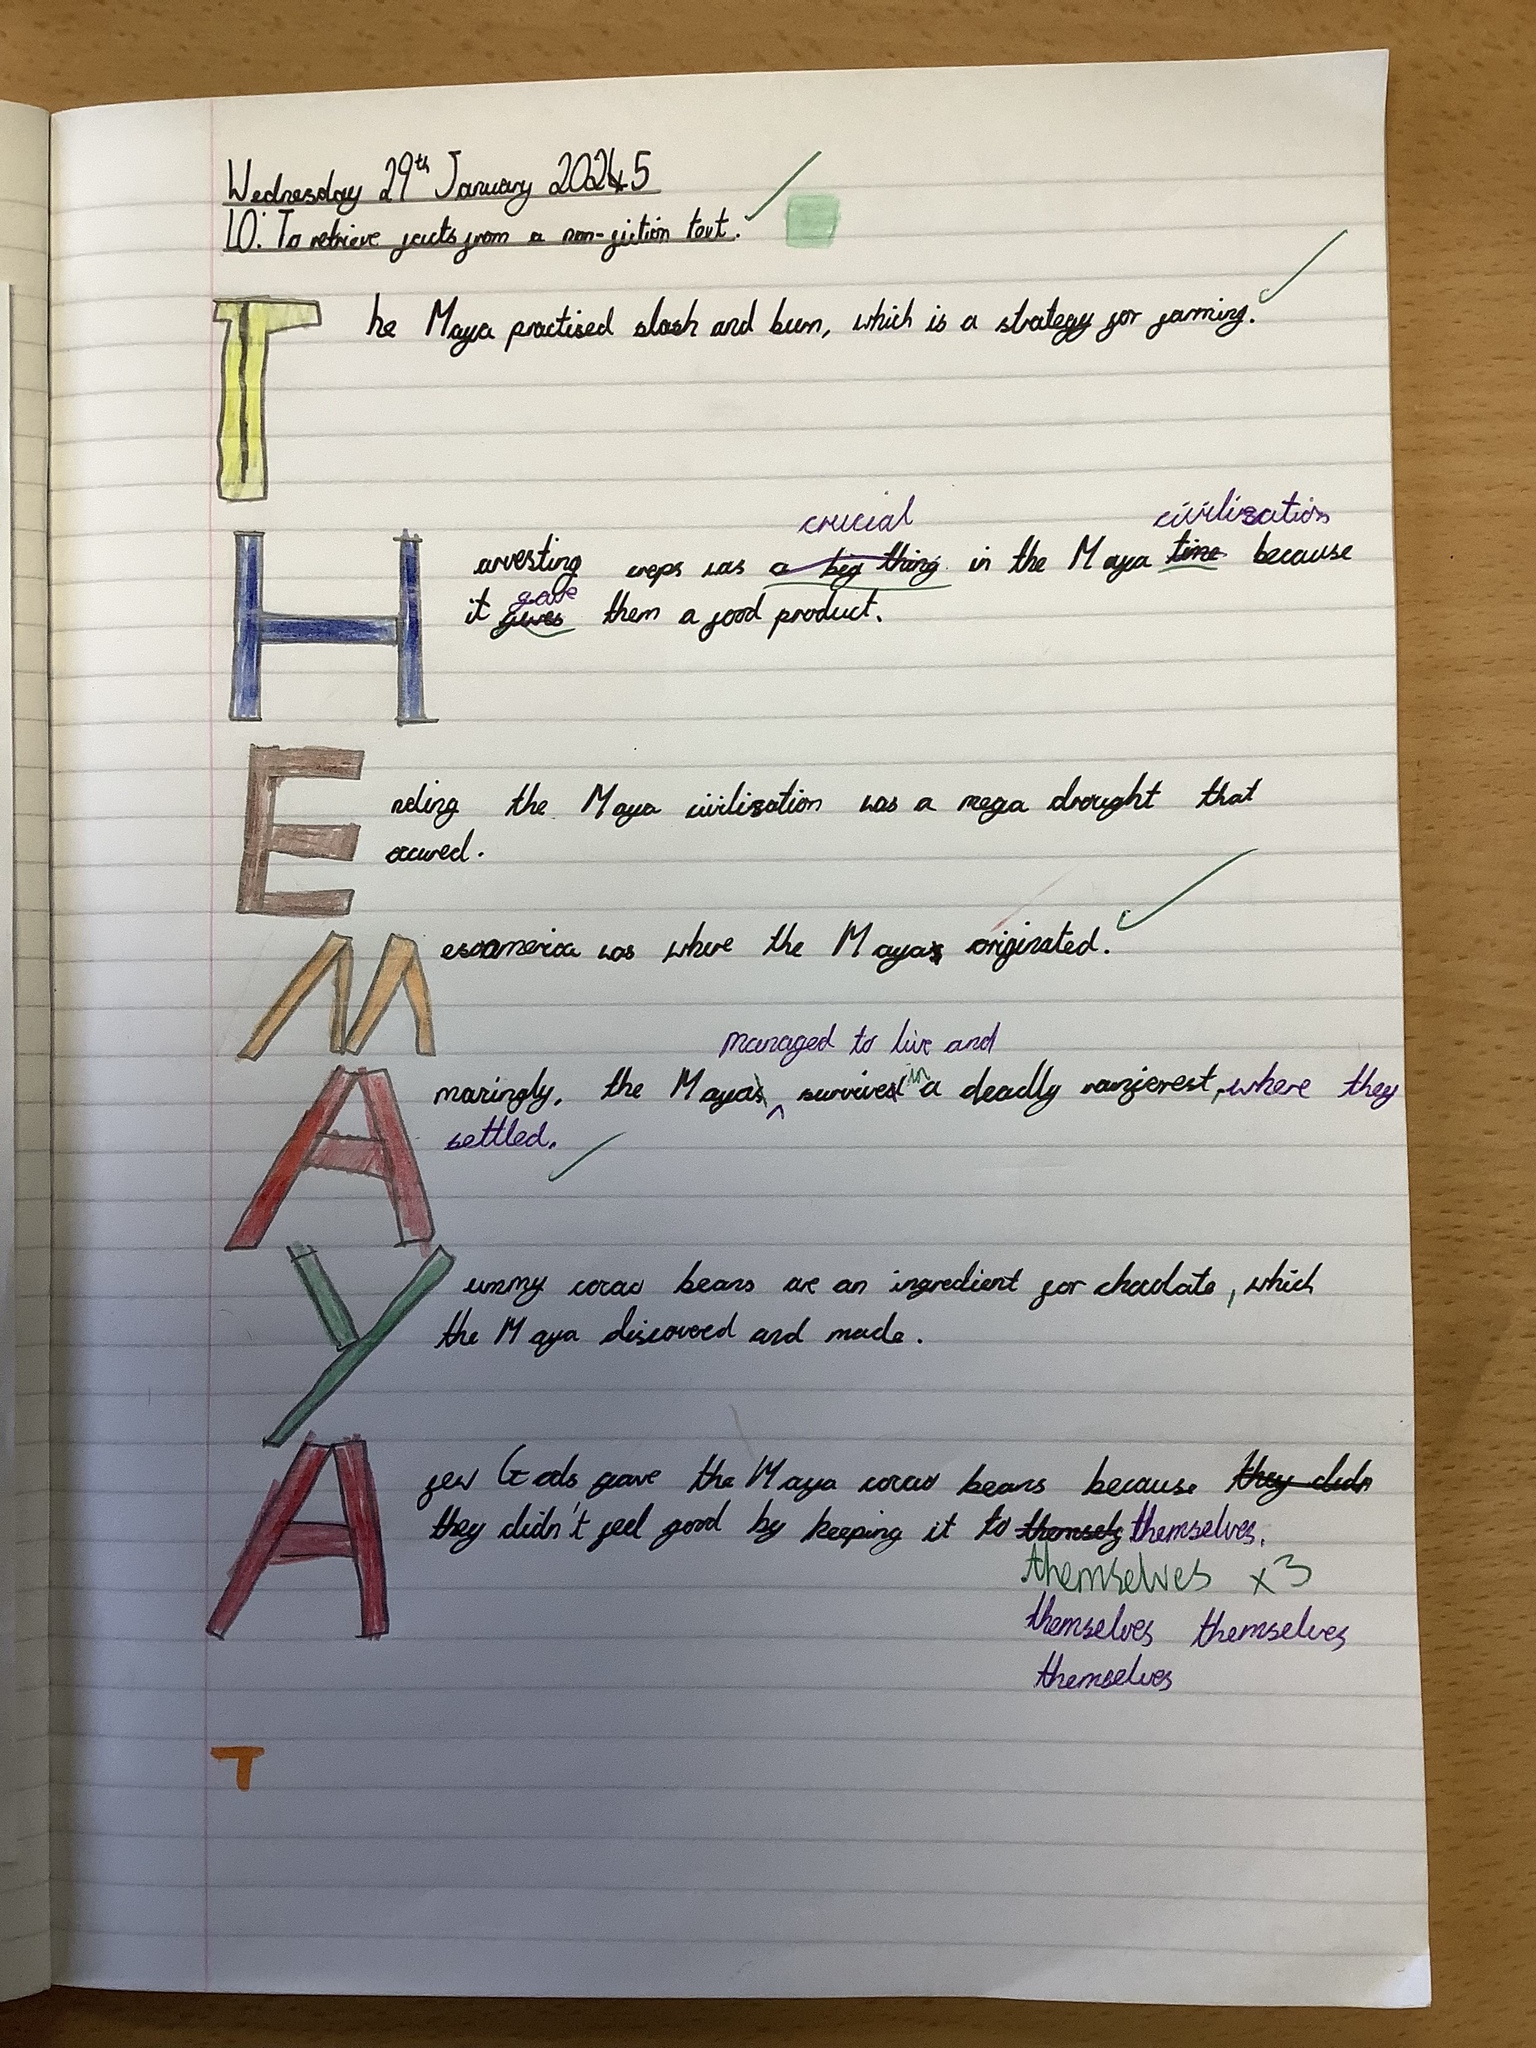 Wednesday 29th January 2025
LO: To retrieve facts from a non-fiction text.
The Maya practised slash and burn, which is a strategy for farming.
crucial civilisation
Harvesting crops was a big thing in the Maya time because
gave
it gives them a good product.
Ending the Maya civilisation was a mega drought that
occured.
Mesoamerica was where the Mayas originated.
managed to live and
Amazingly, the Mayas survived in a deadly rainforest, where they
settled.
Yummy cacao beans are an ingredient for chocolate, which
the Maya discovered and made.
A few Gods gave the Maya cacao beans because they didn
they didn't feel good by keeping it to themsely themselves.
themselves x3
themselves themselves
themselves
T